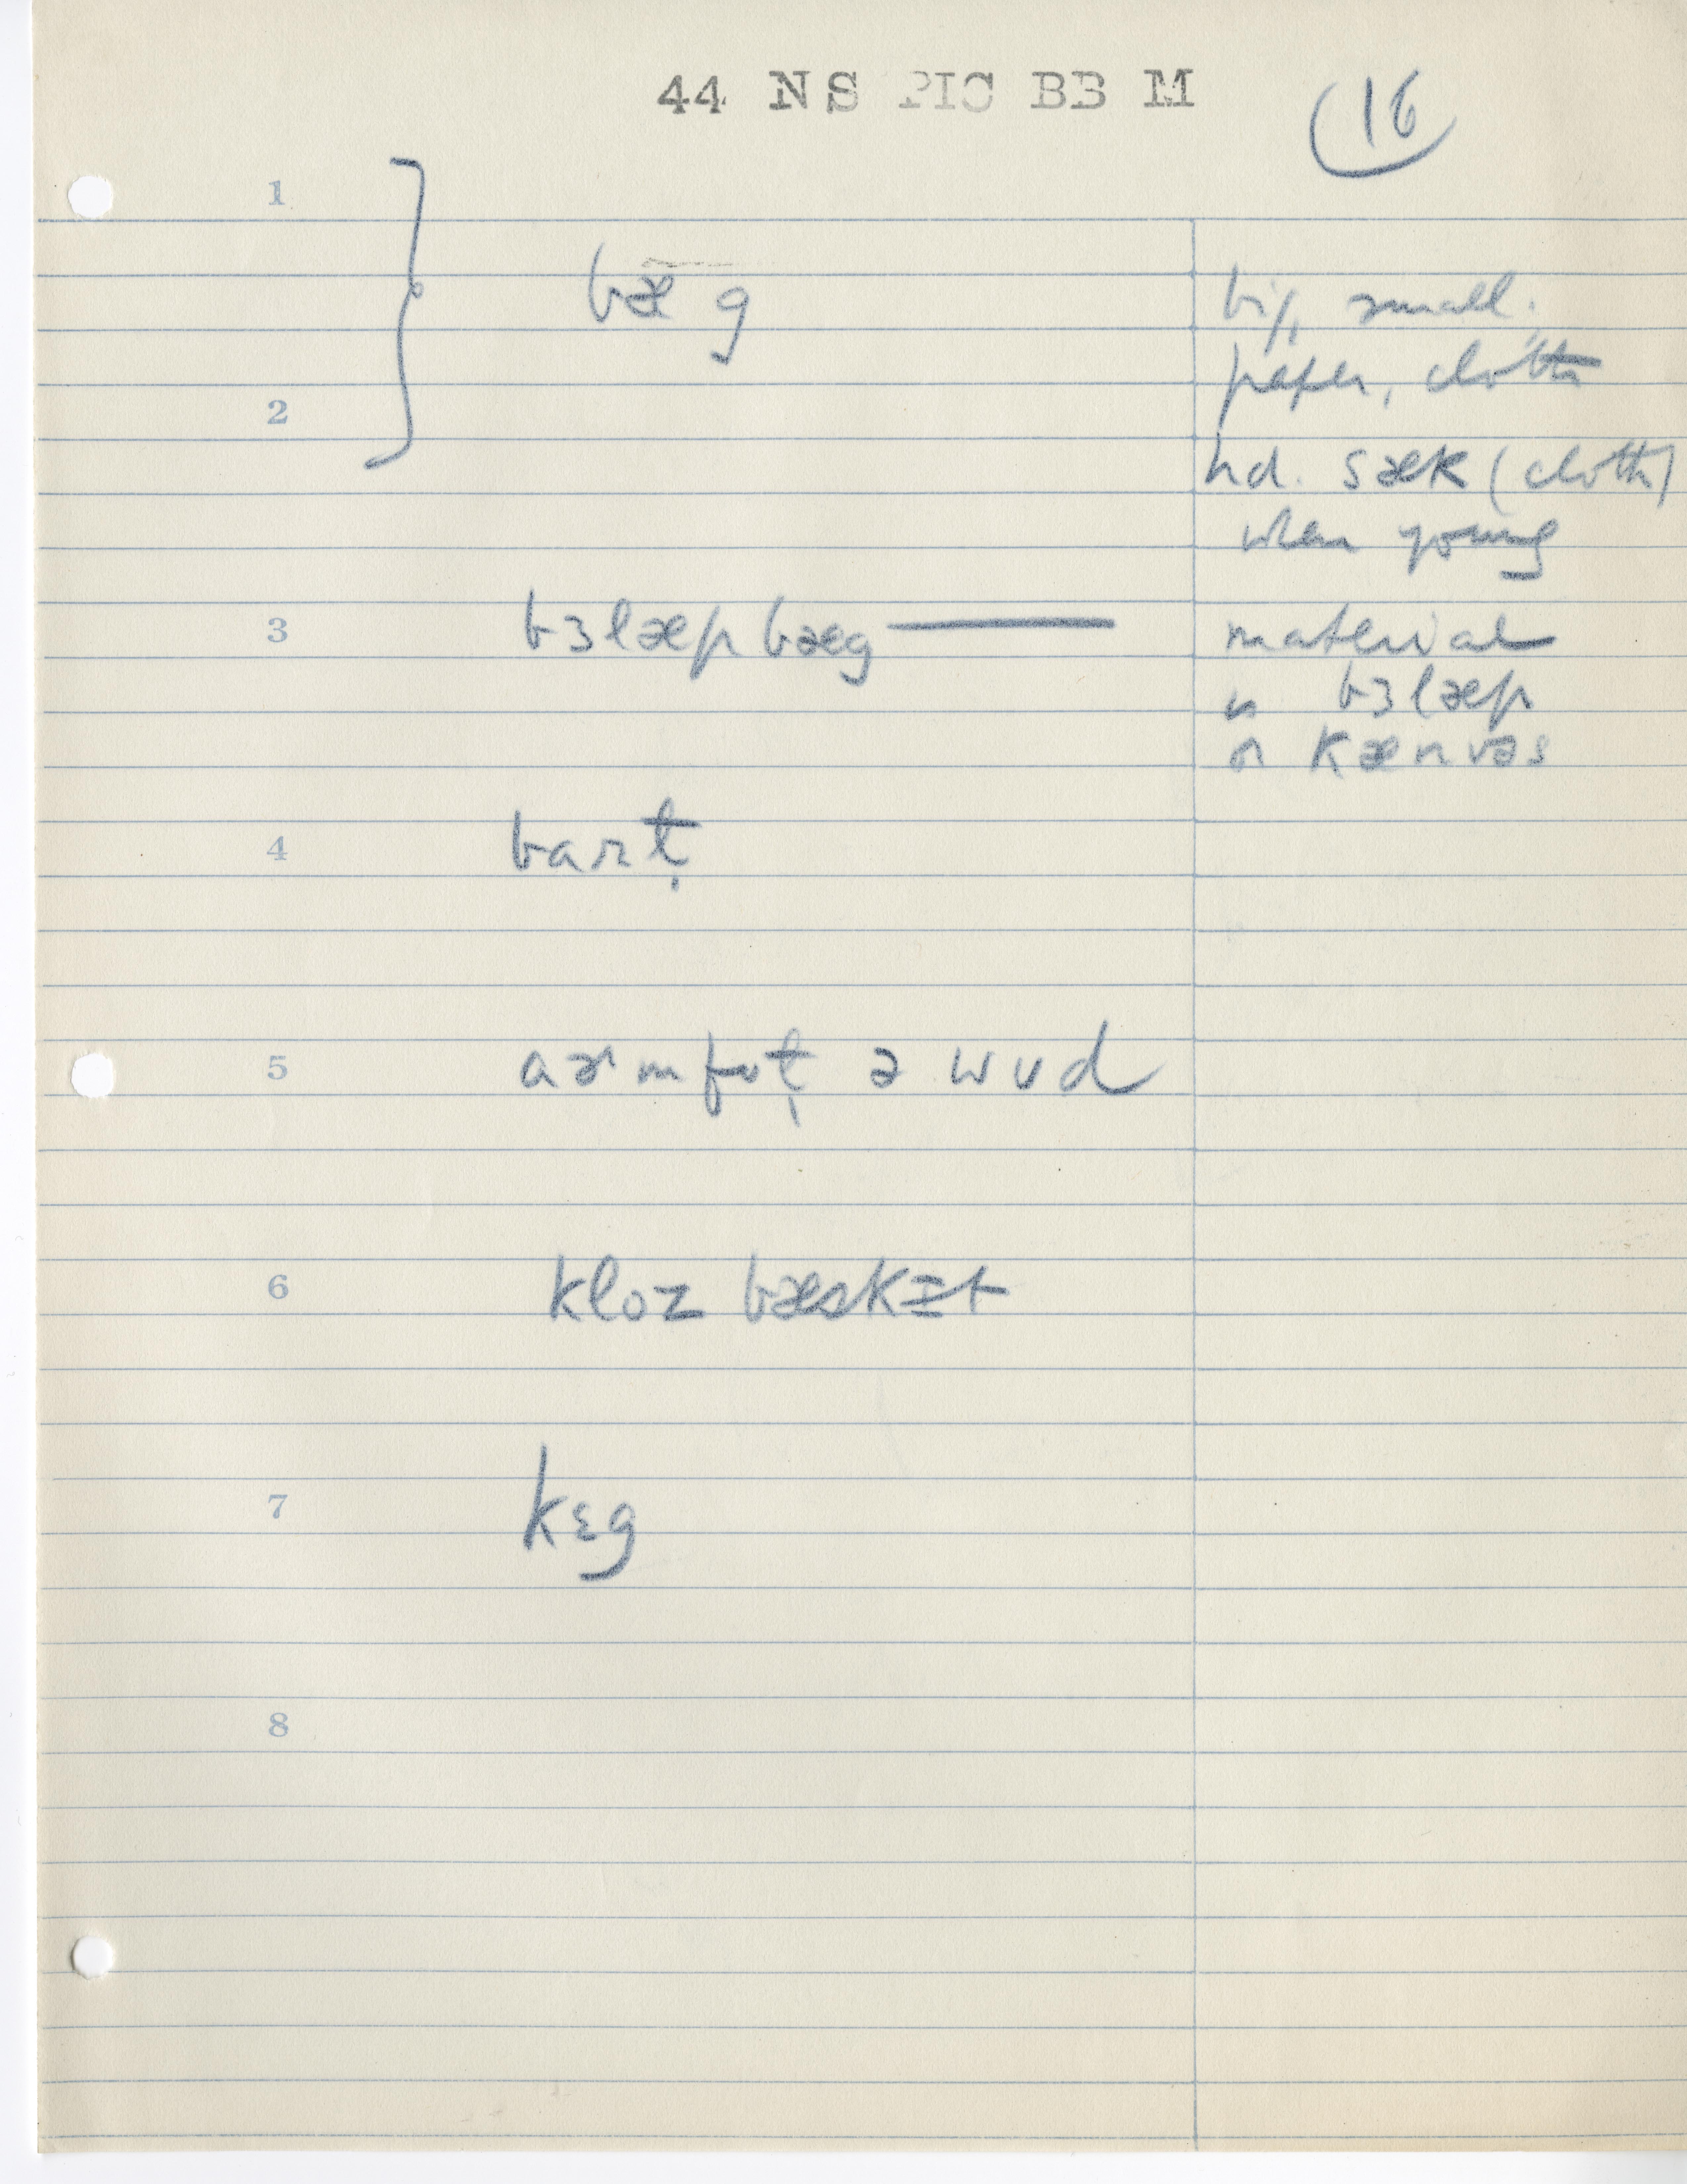 44 NS PIC BB M
16
1
bæ g
big, small.
paper, cloth
2
hd. sæk (cloth)
when young
3
bɜlæp bæg —
material
is bɜlæp
or kænvəs
4
5
ə wud
6
kloz bæskɪt
7
kɛg
8